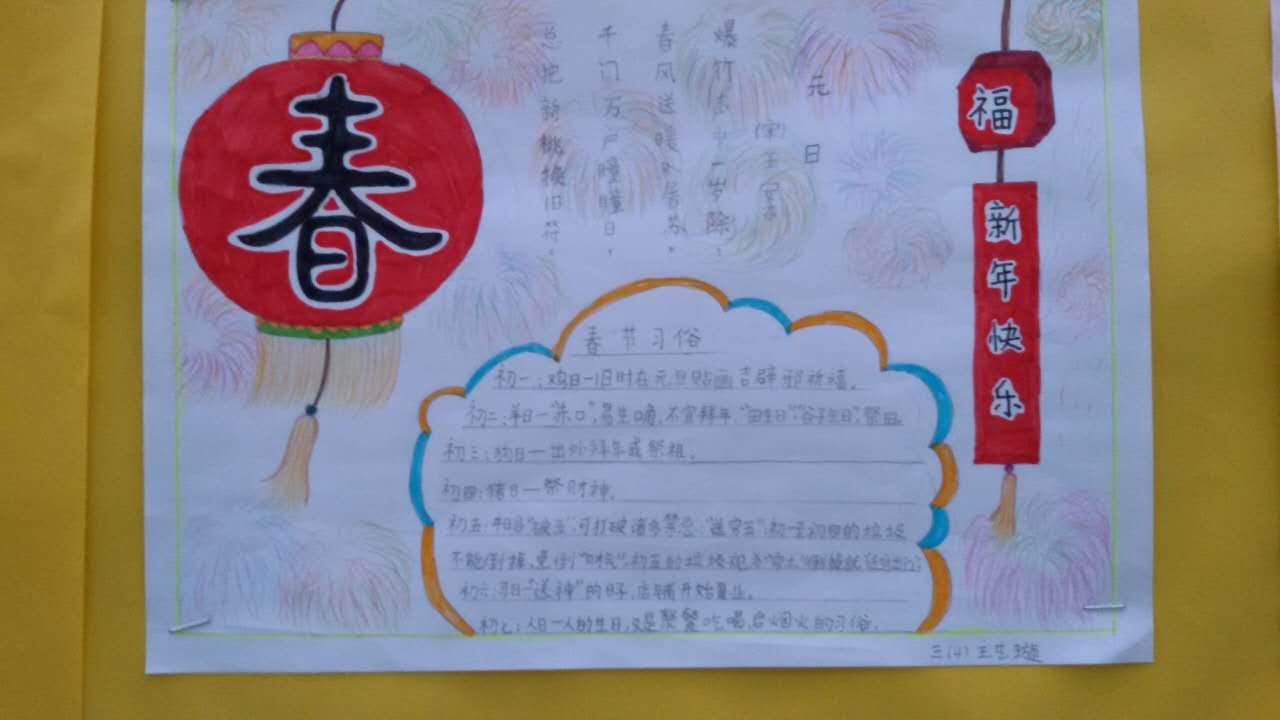 春
元
日
(宋)王安
爆竹声中一岁除,
春风送暖入屠苏。
千门万户曈曈日,
总把新桃换旧符。
福
新年快乐
春节习俗
初一:鸡日—旧时在元旦贴画吉辟邪祈福。
初二:羊日—"赤口",易生口角,不宜拜年,"谷子生日",祭
初三:狗日—出外拜年或祭祖。
初四:猪日—祭财神。
初五:牛日"破五",可打破诸多禁忌:"送穷五",初一至初四的垃圾
不能倒掉,免倒 初五的垃圾视为
初六:马日"送神"的日子,店铺开始营业。
初七:人日—人的生日,又是聚餐吃喝,启烟火的习俗.
三(4) 王艺璇